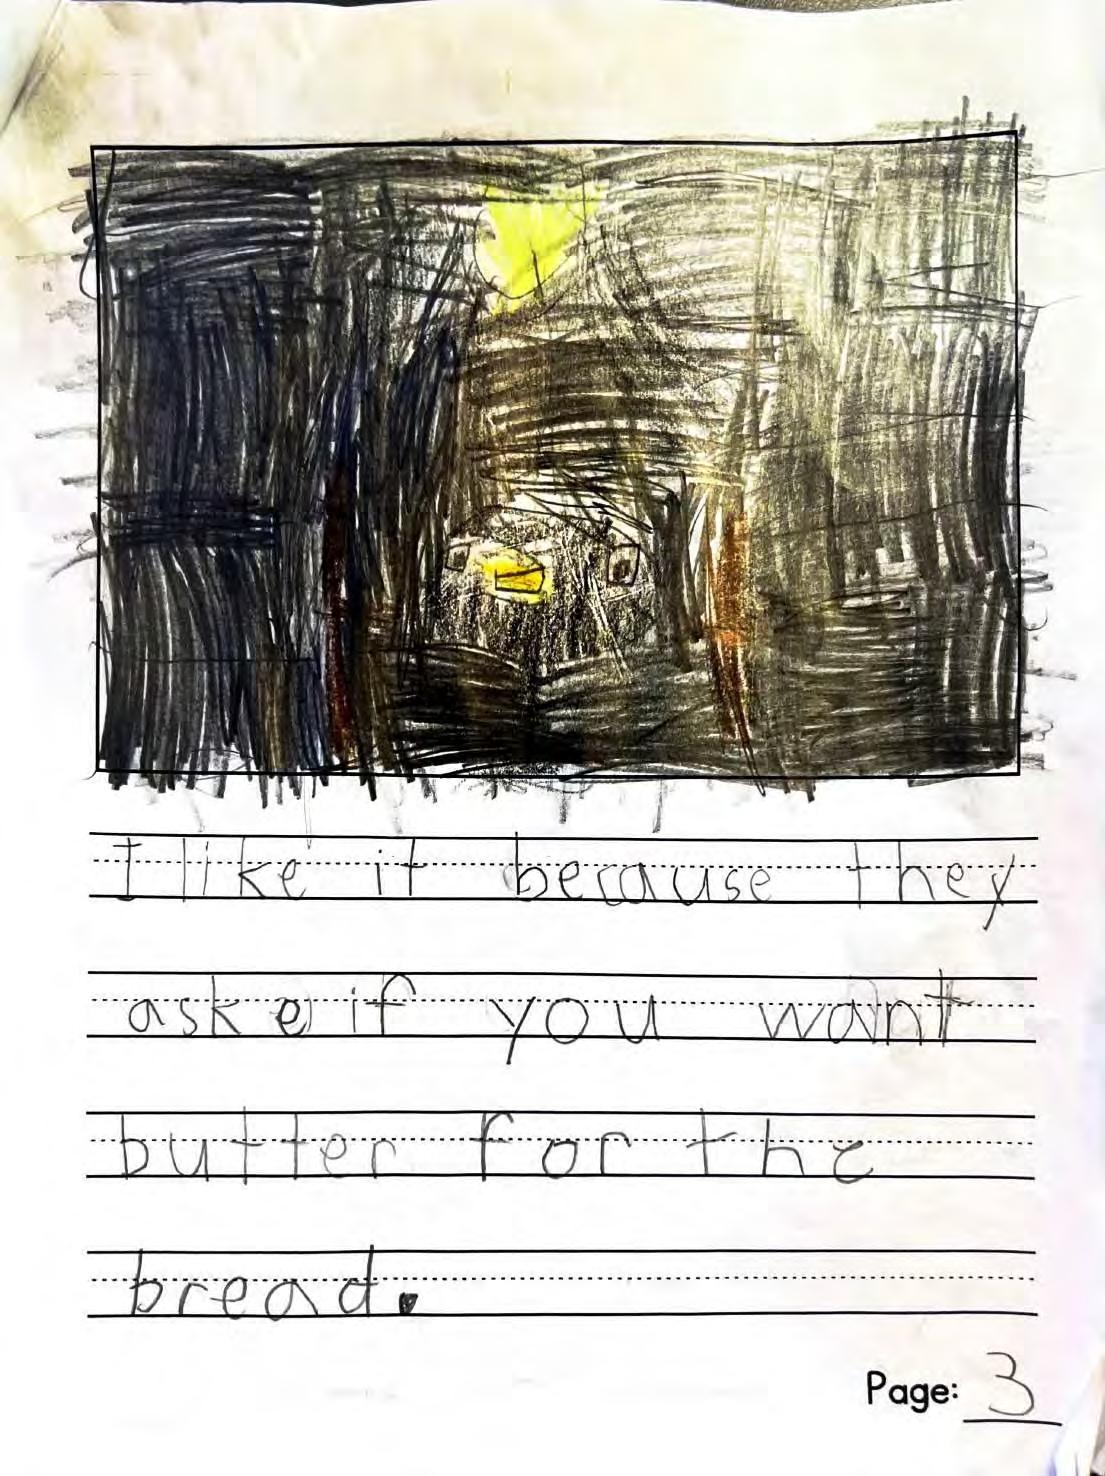 I like it because they
aske if you want
butter for the
bread.
Page: 3